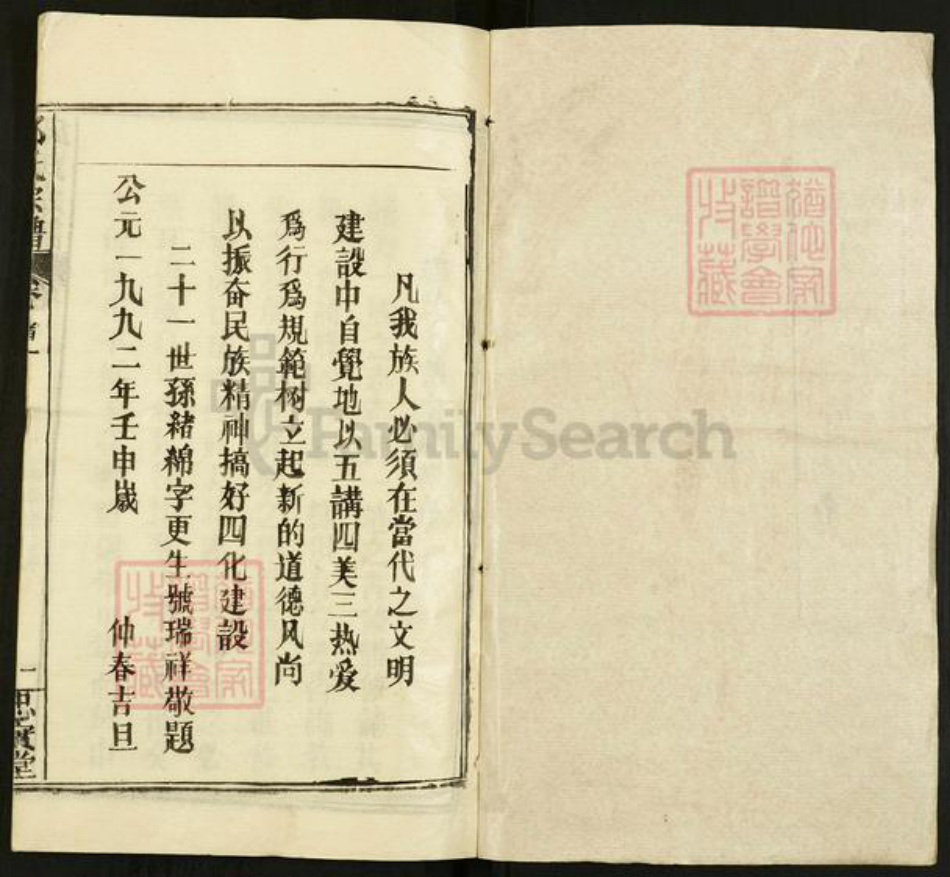 凡我族人必須在當代之文明
建設中自覺地以五講四美三热爱
爲行爲規範树立起新的道德风尚
以振奋民族精神搞好四化建設
二十一世孫緒綿字更生號瑞祥敬題
公元一九九二年壬申歲 仲春吉旦
氏宗譜
卷首
二
堂
FamilySearch
譜學會
收藏